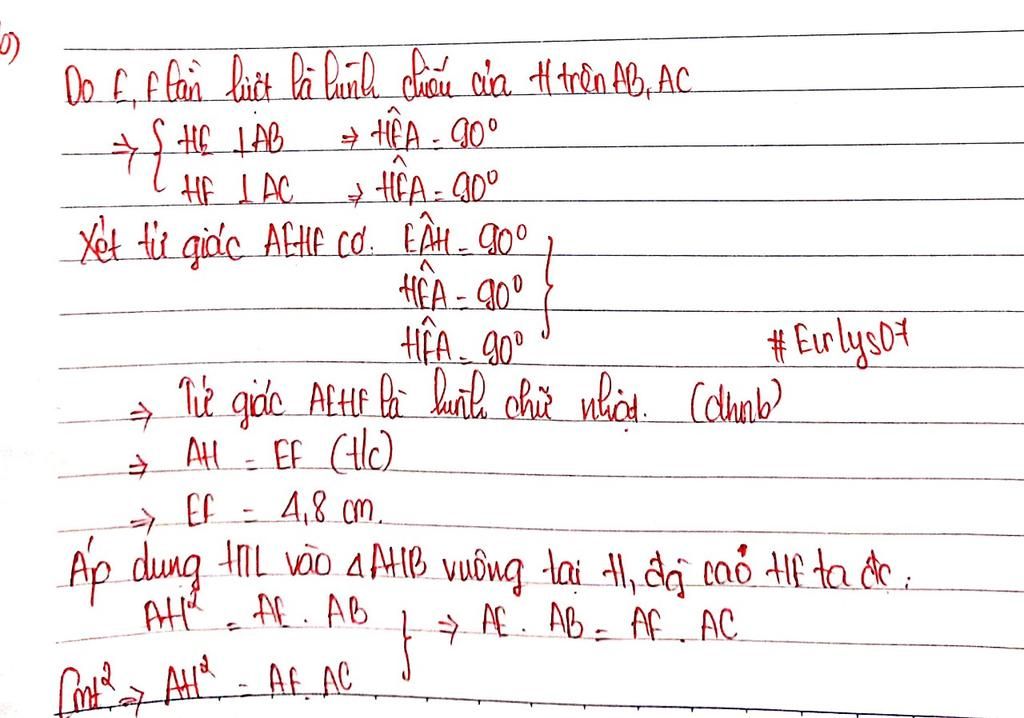 b)
Do E, F lần lượt là hình chiếu của H trên AB, AC
⇒ { HE ⊥ AB ⇒ HÊA = 90°
HF ⊥ AC ⇒ HF̂A = 90°
Xét tứ giác AEHF có: EÂH = 90°
HÊA = 90°
HF̂A = 90°
#Eirlys07
⇒ Tứ giác AEHF là hình chữ nhật. (dhnb)
⇒ AH = EF (t/c)
⇒ EF = 4,8 cm.
Áp dụng HTL vào ΔAHB vuông tại H, độ cao HE ta đc:
AH² = AE . AB } ⇒ AE . AB = AF . AC
Cmt² ⇒ AH² = AF . AC